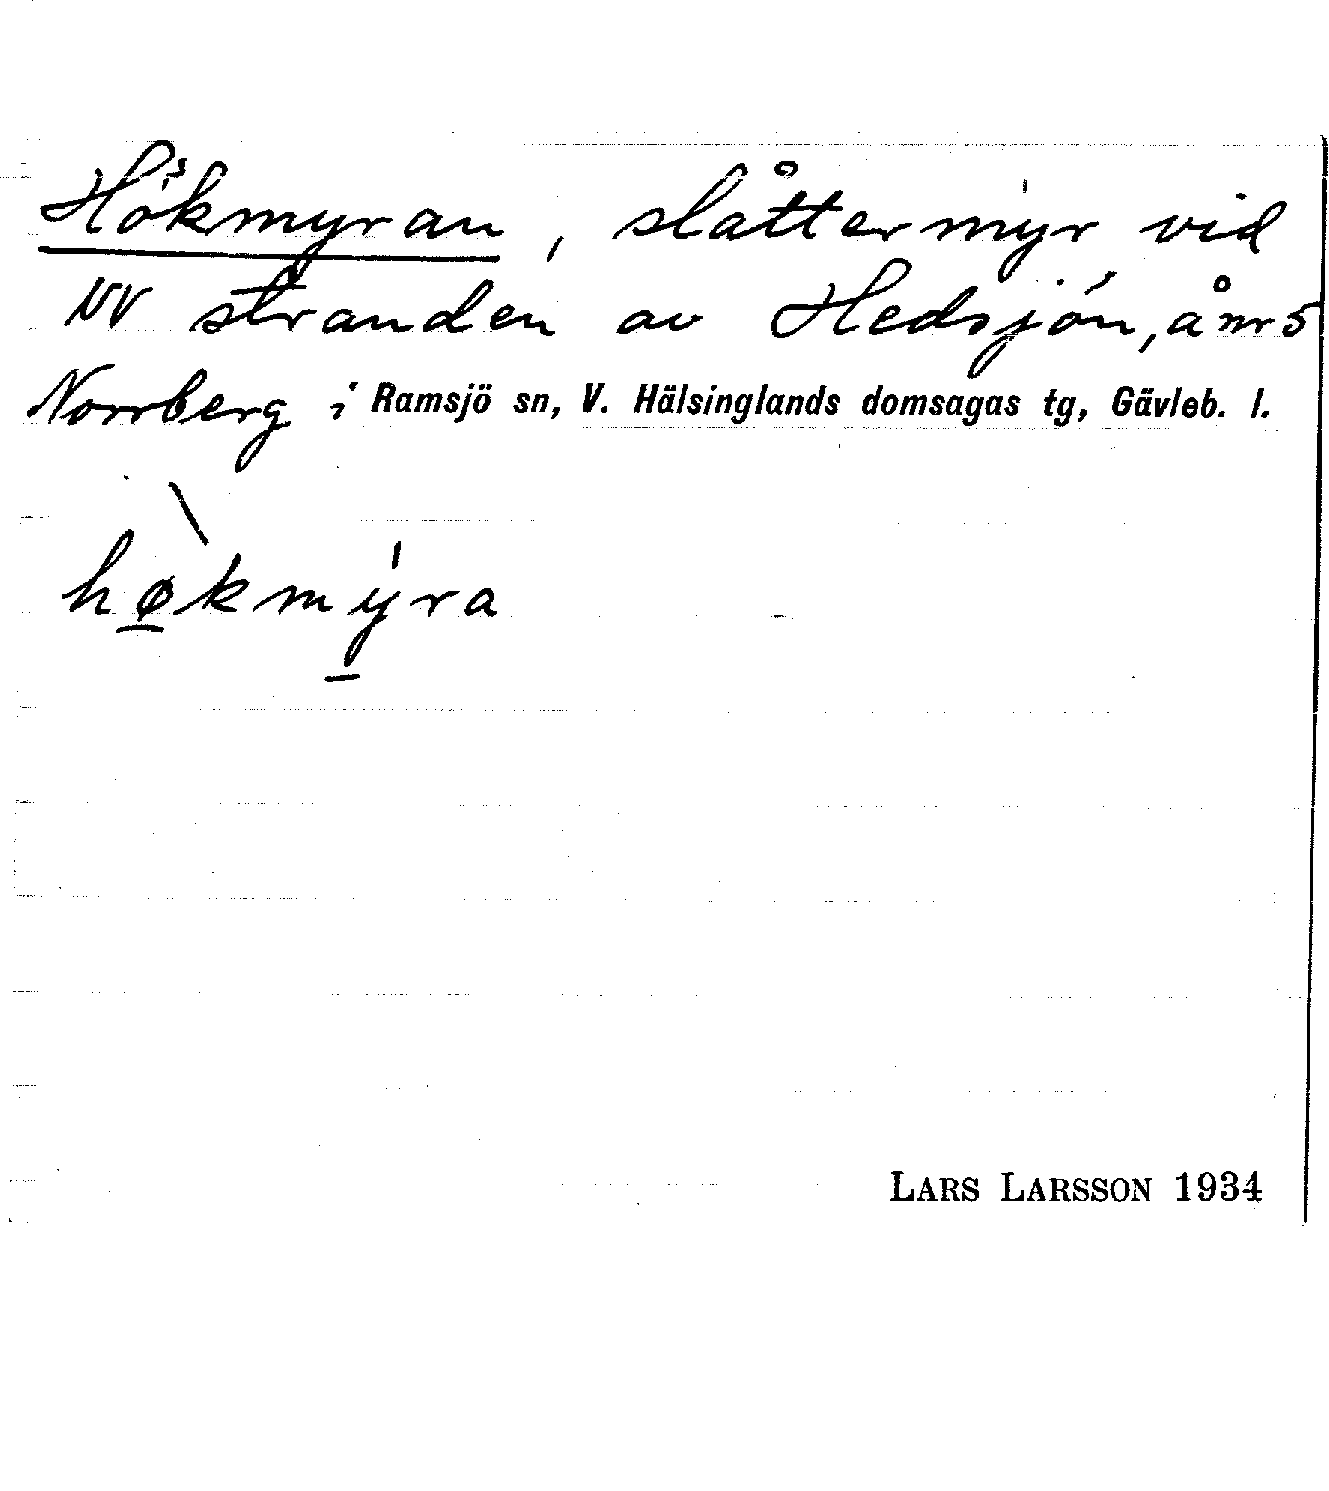 Hökmyran, slåttermyr vid
NV stranden av Hedsjön, å nr 5
Norrberg i Ramsjö sn, V. Hälsinglands domsagas tg, Gävleb. l.
hø̀kmýra
LARS LARSSON 1934